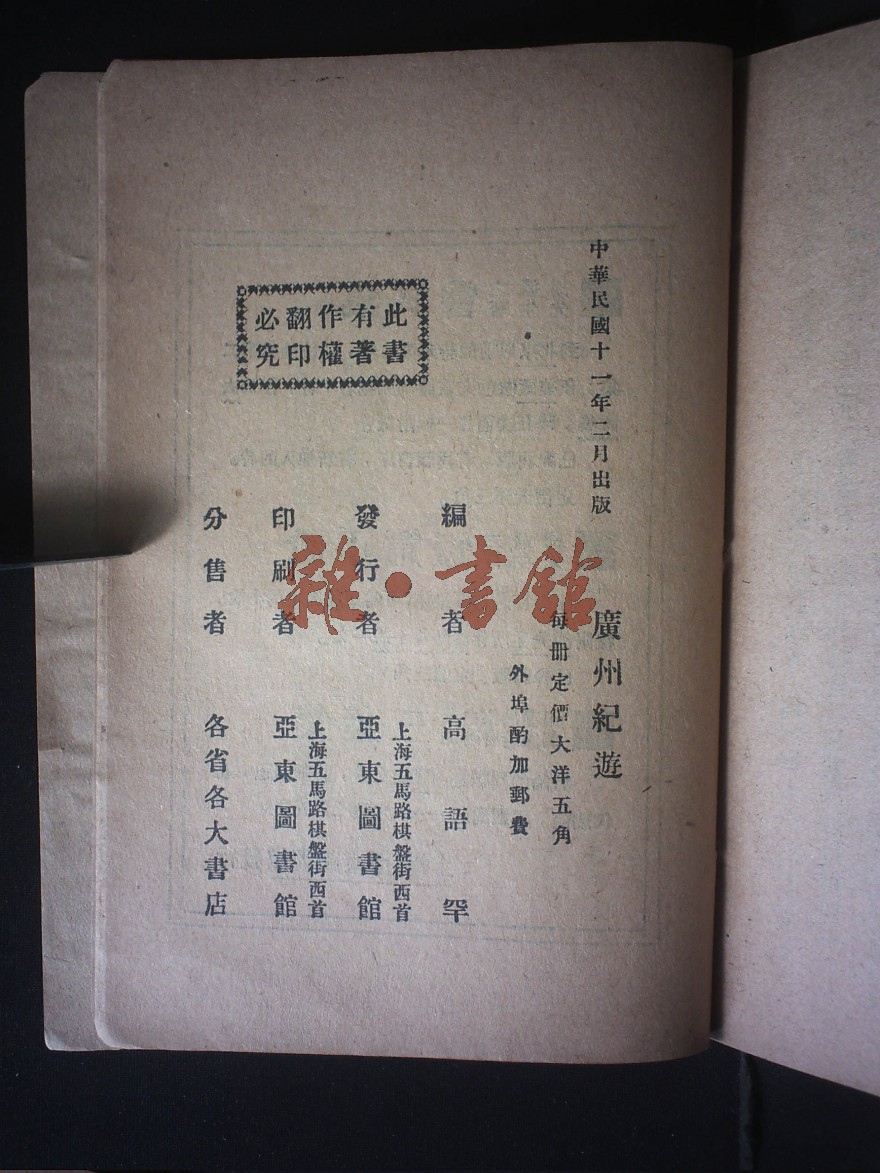 中華民國十一年二月出版
廣州紀遊
每冊定價大洋五角
外埠酌加郵費
此書有著作權翻印必究
編著者 高語罕
發行者 上海五馬路棋盤街西首 亞東圖書館
印刷者 上海五馬路棋盤街西首 亞東圖書館
分售者 各省各大書店
雜·書館